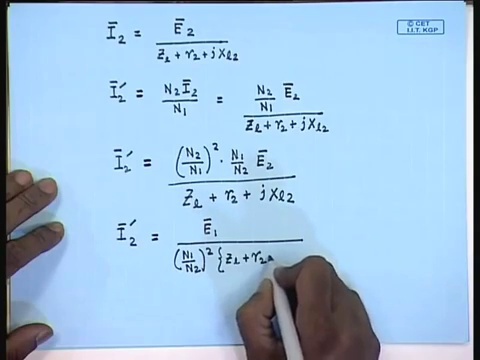 © CET
I.I.T. KGP
Ī₂ = Ē₂ / (Z_l + r₂ + jX_l2)
Ī₂′ = N₂Ī₂ / N₁ = (N₂/N₁) Ē₂ / (Z_l + r₂ + jX_l2)
Ī₂′ = (N₂/N₁)² · (N₁/N₂) Ē₂ / (Z_l + r₂ + jX_l2)
Ī₂′ = Ē₁ / (N₁/N₂)² {Z_l + r₂